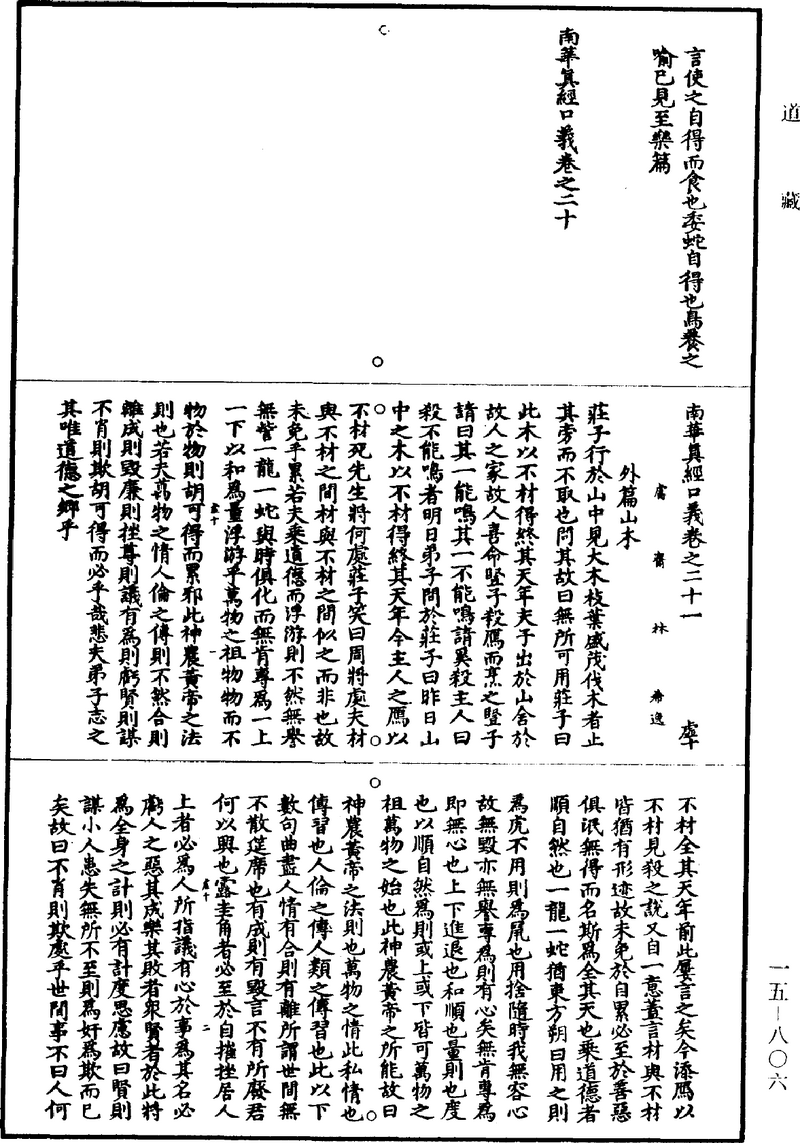 道藏
言使之自得而食也委蛇自得也鳥養之
喻已見至樂篇
南華真經口義卷之二十
南華真經口義卷之二十一
鬳齋林希逸
外篇山木
莊子行於山中見大木枝葉盛茂伐木者止
其旁而不取也問其故曰無所可用莊子曰
此木以不材得終其天年夫子出於山舍於
故人之家故人喜命豎子殺鴈而烹之豎子
請曰其一能鳴其一不能鳴請奚殺主人曰
殺不能鳴者明日弟子問於莊子曰昨日山
中之木以不材得終其天年今主人之鴈以
不材死先生將何處莊子笑曰周將處夫材
與不材之間材與不材之間似之而非也故
未免乎累若夫乘道德而浮游則不然無譽
無訾一龍一蛇與時俱化而無肯專為一上
一下以和為量浮游乎萬物之祖物物而不
物於物則胡可得而累邪此神農黃帝之法
則也若夫萬物之情人倫之傳則不然合則
離成則毀廉則挫尊則議有為則虧賢則謀
不肖則欺胡可得而必乎哉悲夫弟子志之
其唯道德之鄉乎
不材全其天年前此屢言之矣今添鴈以
不材見殺之說又自一意蓋言材與不材
皆猶有形迹故未免於自累必至於善惡
俱泯無得而名斯為全其天也乘道德者
順自然也一龍一蛇猶東方朔曰用之則
為虎不用則為鼠也用捨隨時我無容心
故無毀亦無譽專為則有心矣無肯專為
即無心也上下進退也和順也量則也度
也以順自然為則或上或下皆可萬物之
祖萬物之始也此神農黃帝之所能故曰
神農黃帝之法則也萬物之情此私情也
傳習也人倫之傳人類之傳習也此以下
數句曲盡人情有合則有離所謂世間無
不散筵席也有成則有毀言不有所廢君
何以興也露圭角者必至於自摧挫居人
上者必為人所指議有心於事為其名必
虧人之惡其成樂其敗者眾賢者於此將
為全身之計則必有計度思慮故曰賢則
謀小人患失無所不至則為奸為欺而已
矣故曰不肖則欺處乎世間事不曰人何
一五－八〇六